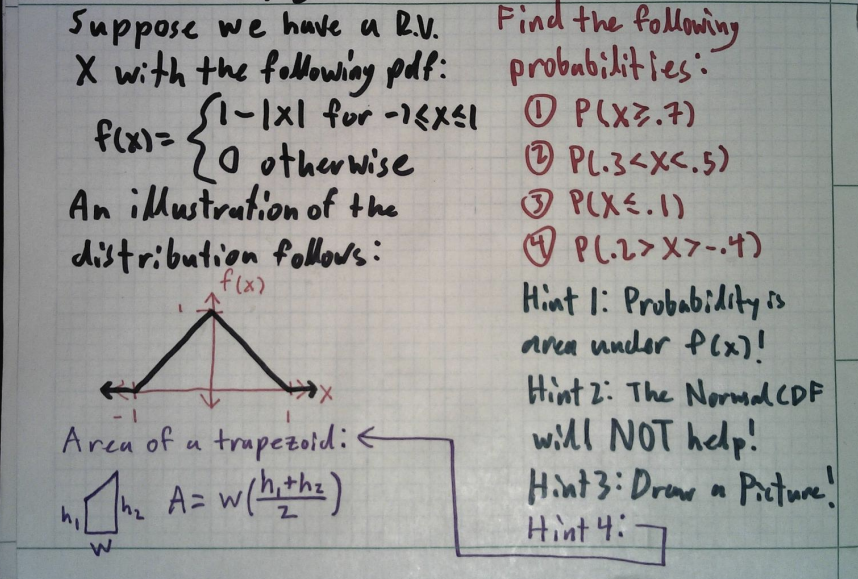 Suppose we have a R.V.
X with the following pdf:
f(x)= { 1-|x| for -1≤x≤1
0 otherwise
An illustration of the
distribution follows:
f(x)
1
x
-1
1
Area of a trapezoid:
h₁ h₂ A = w(h₁+h₂/2)
w
Find the following
probabilities:
① P(X≥.7)
② P(.3<X<.5)
③ P(X≤.1)
④ P(.2>X>-.4)
Hint 1: Probability is
area under f(x)!
Hint 2: The Normal CDF
will NOT help!
Hint 3: Draw a Picture!
Hint 4: